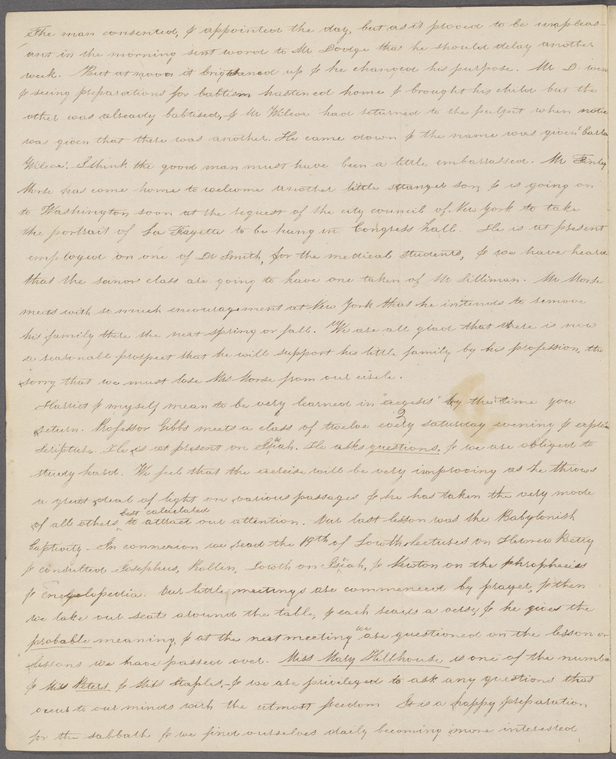 The man consented, & appointed the day, but as it proved to be unpleas
ant in the morning sent word to Mr Dodge that he should delay another
week. But at noon it brightened up & he changed his purpose. Mr D
& seeing preparations for babtism hastened home & brought his child but the
other was already babtised, & Mr Wilcox had returned to the pulpit when notice
was given that there was another. He came down & the name was given
Wilcox. I think the good man must have been a little embarrassed. Mr Finley
Morse has come home to welcome another little stranger son, & is going on
to Washington soon at the request of the city council of New York to take
the portrait of La Fayette to be hung in Congress hall. He is at present
employed on one of Dr Smith, for the medical students, & we have heard
that the senor class are going to have one taken of Mr Silliman. Mr Morse
meets with so much encouragement at New York that he intends to remove
his family there the next spring or fall. We are all glad that there is now
a reasonable prospect that he will support his little family by his profession, tho
sorry that we must lose Mrs Morse from our circle.
Harriet & myself mean to be very learned in "exegesis" by the time you
return. Professor Gibbs meets a class of twelve every saturday evening to explain
scripture. He is at present on Isaiah. He asks questions, & we are obliged to
study hard. We feel that the exercise will be very improving as he throws
a great deal of light on various passages & he has taken the very mode
of all others best calculated to attract our attention. Our last lesson was the Babylonish
Captivity. In connexion we read the 19th of Lowths lectures on Hebrew Poetry
& consulted Josephus, Rollin, Lowth on Isaiah, & Newton on the prophecies
& Encyclopedia. Our little meetings are commenced by prayer, & then
we take our seats around the table, & each reads a verse, & he gives the
probable meaning, & at the next meeting we are questioned on the lesson or
lessons we have passed over. Miss Mary Hillhouse is one of the number
& Miss Peters & Miss Staples, & we are privileged to ask any questions that
occur to our minds with the utmost freedom It is a happy preparation
for the sabbath & we find ourselves daily becoming more interested